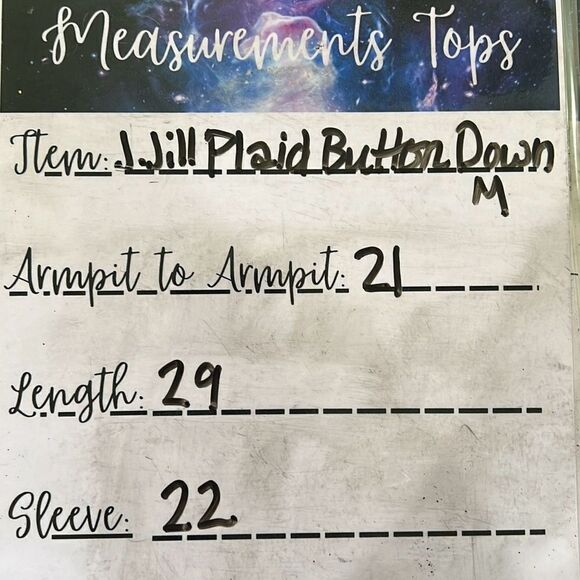 Measurements Tops
Item: J.Jill Plaid Button Down
M
Armpit to Armpit: 21
Length: 29
Sleeve: 22